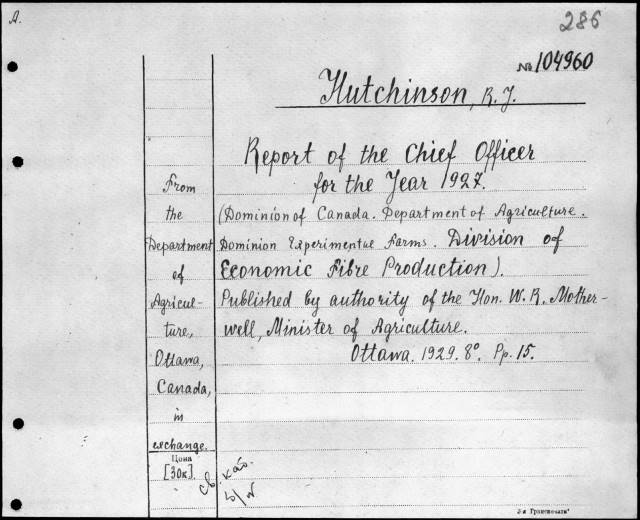 A.
286
№ 104960
Hutchinson, R. J.
Report of the Chief Officer
for the Year 1927.
(Dominion of Canada. Department of Agriculture.
Dominion Experimental Farms. Division of
Economic Fibre Production).
Published by authority of the Hon. W. R. Mother-
well, Minister of Agriculture.
Ottawa. 1929. 8°. Pp. 15.
From
the
Department
of
Agricul-
ture,
Ottawa,
Canada,
in
exchange.
Цена
[30к].
св. каб.